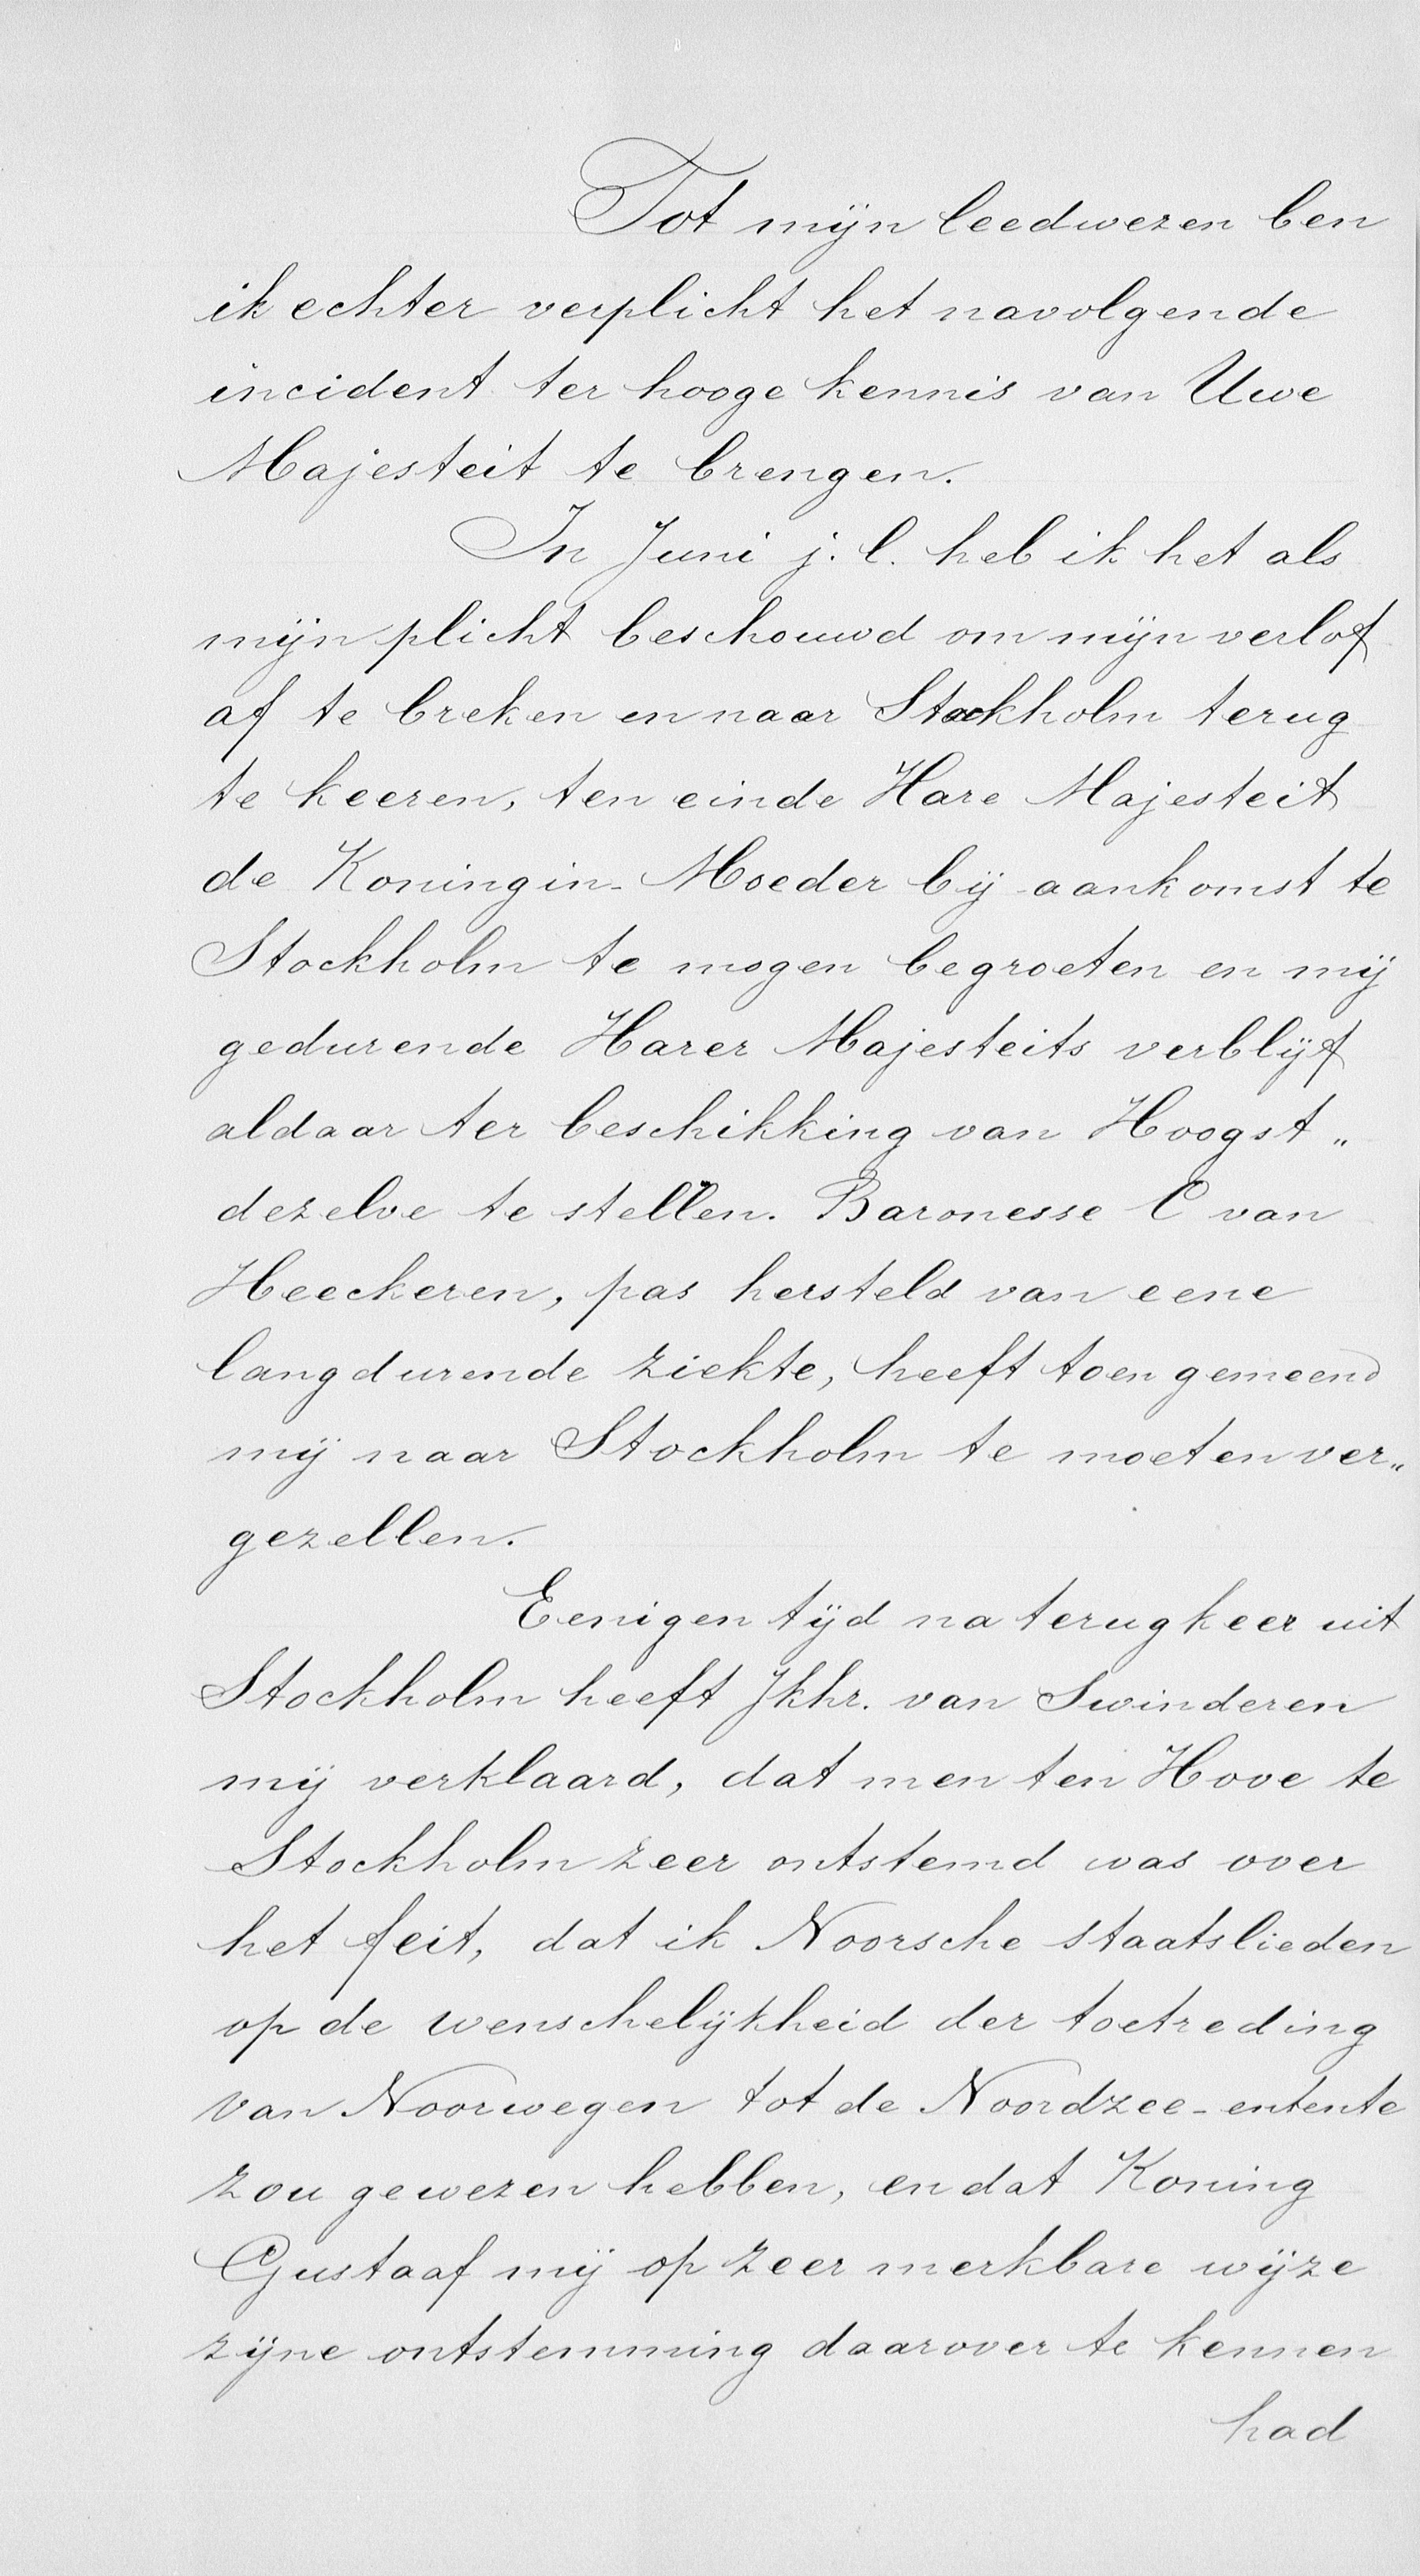 Tot mijn leedwezen ben
ik echter verplicht het navolgende
incident ter hooge kennis van Uwe
Majesteit te brengen.
In Juni j.l. heb ik het als
mijn plicht beschouwd om mijn verlof
af te breken en naar Stockholm terug
te keeren, ten einde Hare Majesteit
de Koningin-Moeder bij aankomst te
Stockholm te mogen begroeten en mij
gedurende Harer Majesteits verblijf
aldaar ter beschikking van Hoogst„
dezelve te stellen. Baronesse C van
Heeckeren, pas hersteld van eene
langdurende ziekte, heeft toen gemeend
mij naar Stockholm te moeten ver„
gezellen.
Eenigen tijd na terugkeer uit
Stockholm heeft Jkhr. van Swinderen
mij verklaard, dat men ten Hove te
Stockholm zeer ontstemd was over
het feit, dat ik Noorsche staatslieden
op de wenschelijkheid der toetreding
van Noorwegen tot de Noordzee-entente
zou gewezen hebben, en dat Koning
Gustaaf mij op zeer merkbare wijze
zijne ontstemming daarover te kennen
had